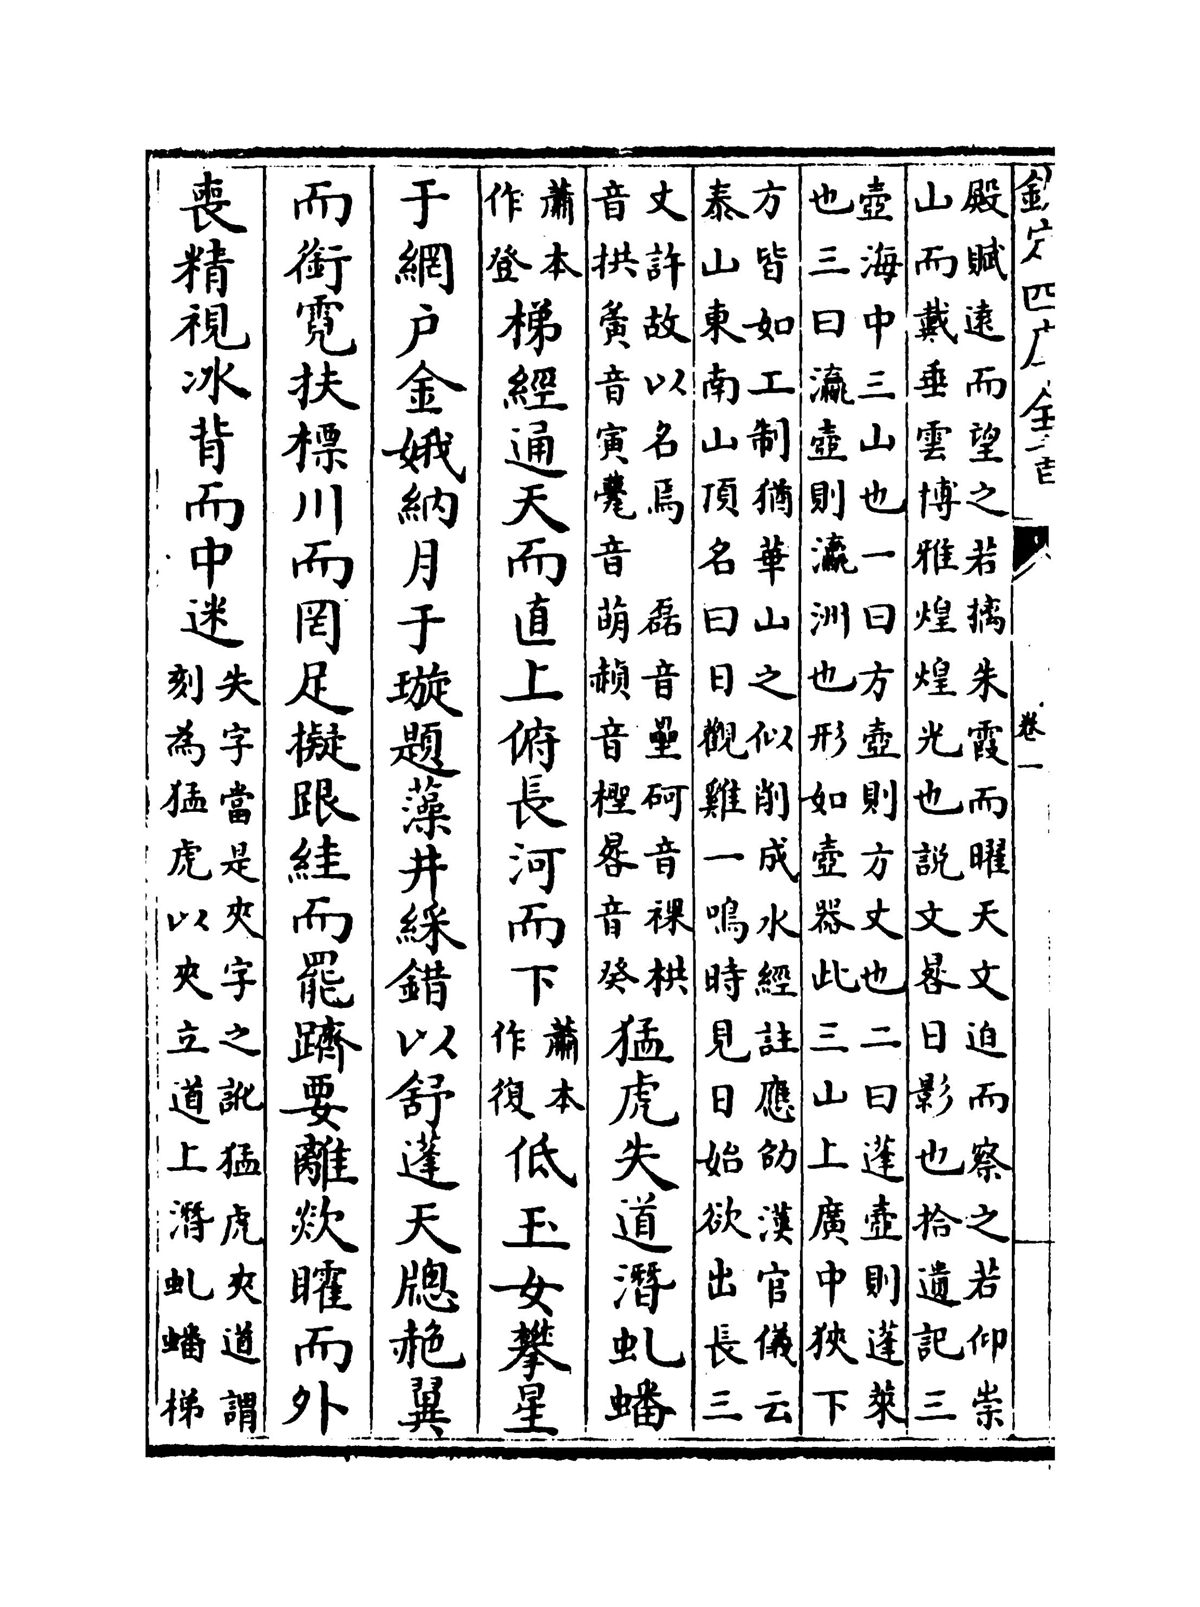 欽定四庫全書
卷一
殿賦遠而望之若摛朱霞而曜天文迫而察之若仰崇
山而戴垂雲博雅煌煌光也説文晷日影也拾遺記三
壺海中三山也一曰方壺則方丈也二曰蓬壺則蓬萊
也三曰瀛壺則瀛洲也形如壺器此三山上廣中狹下
方皆如工制猶華山之似削成水經註應劭漢官儀云
泰山東南山頂名曰日觀雞一鳴時見日始欲出長三
丈許故以名焉　磊音壘砢音裸栱
音拱夤音寅甍音萌赬音檉晷音癸
猛虎失道潛虬蟠
蕭本
作登
梯經通天而直上俯長河而下
蕭本
作復
低玉女攀星
于網户金娥納月于璇題藻井綵錯以舒蓬天牕赩翼
而銜霓扶標川而罔足擬跟絓而罷躋要離欻矐而外
喪精視冰背而中迷
失字當是夾字之訛猛虎夾道謂
刻為猛虎以夾立道上潛虬蟠梯